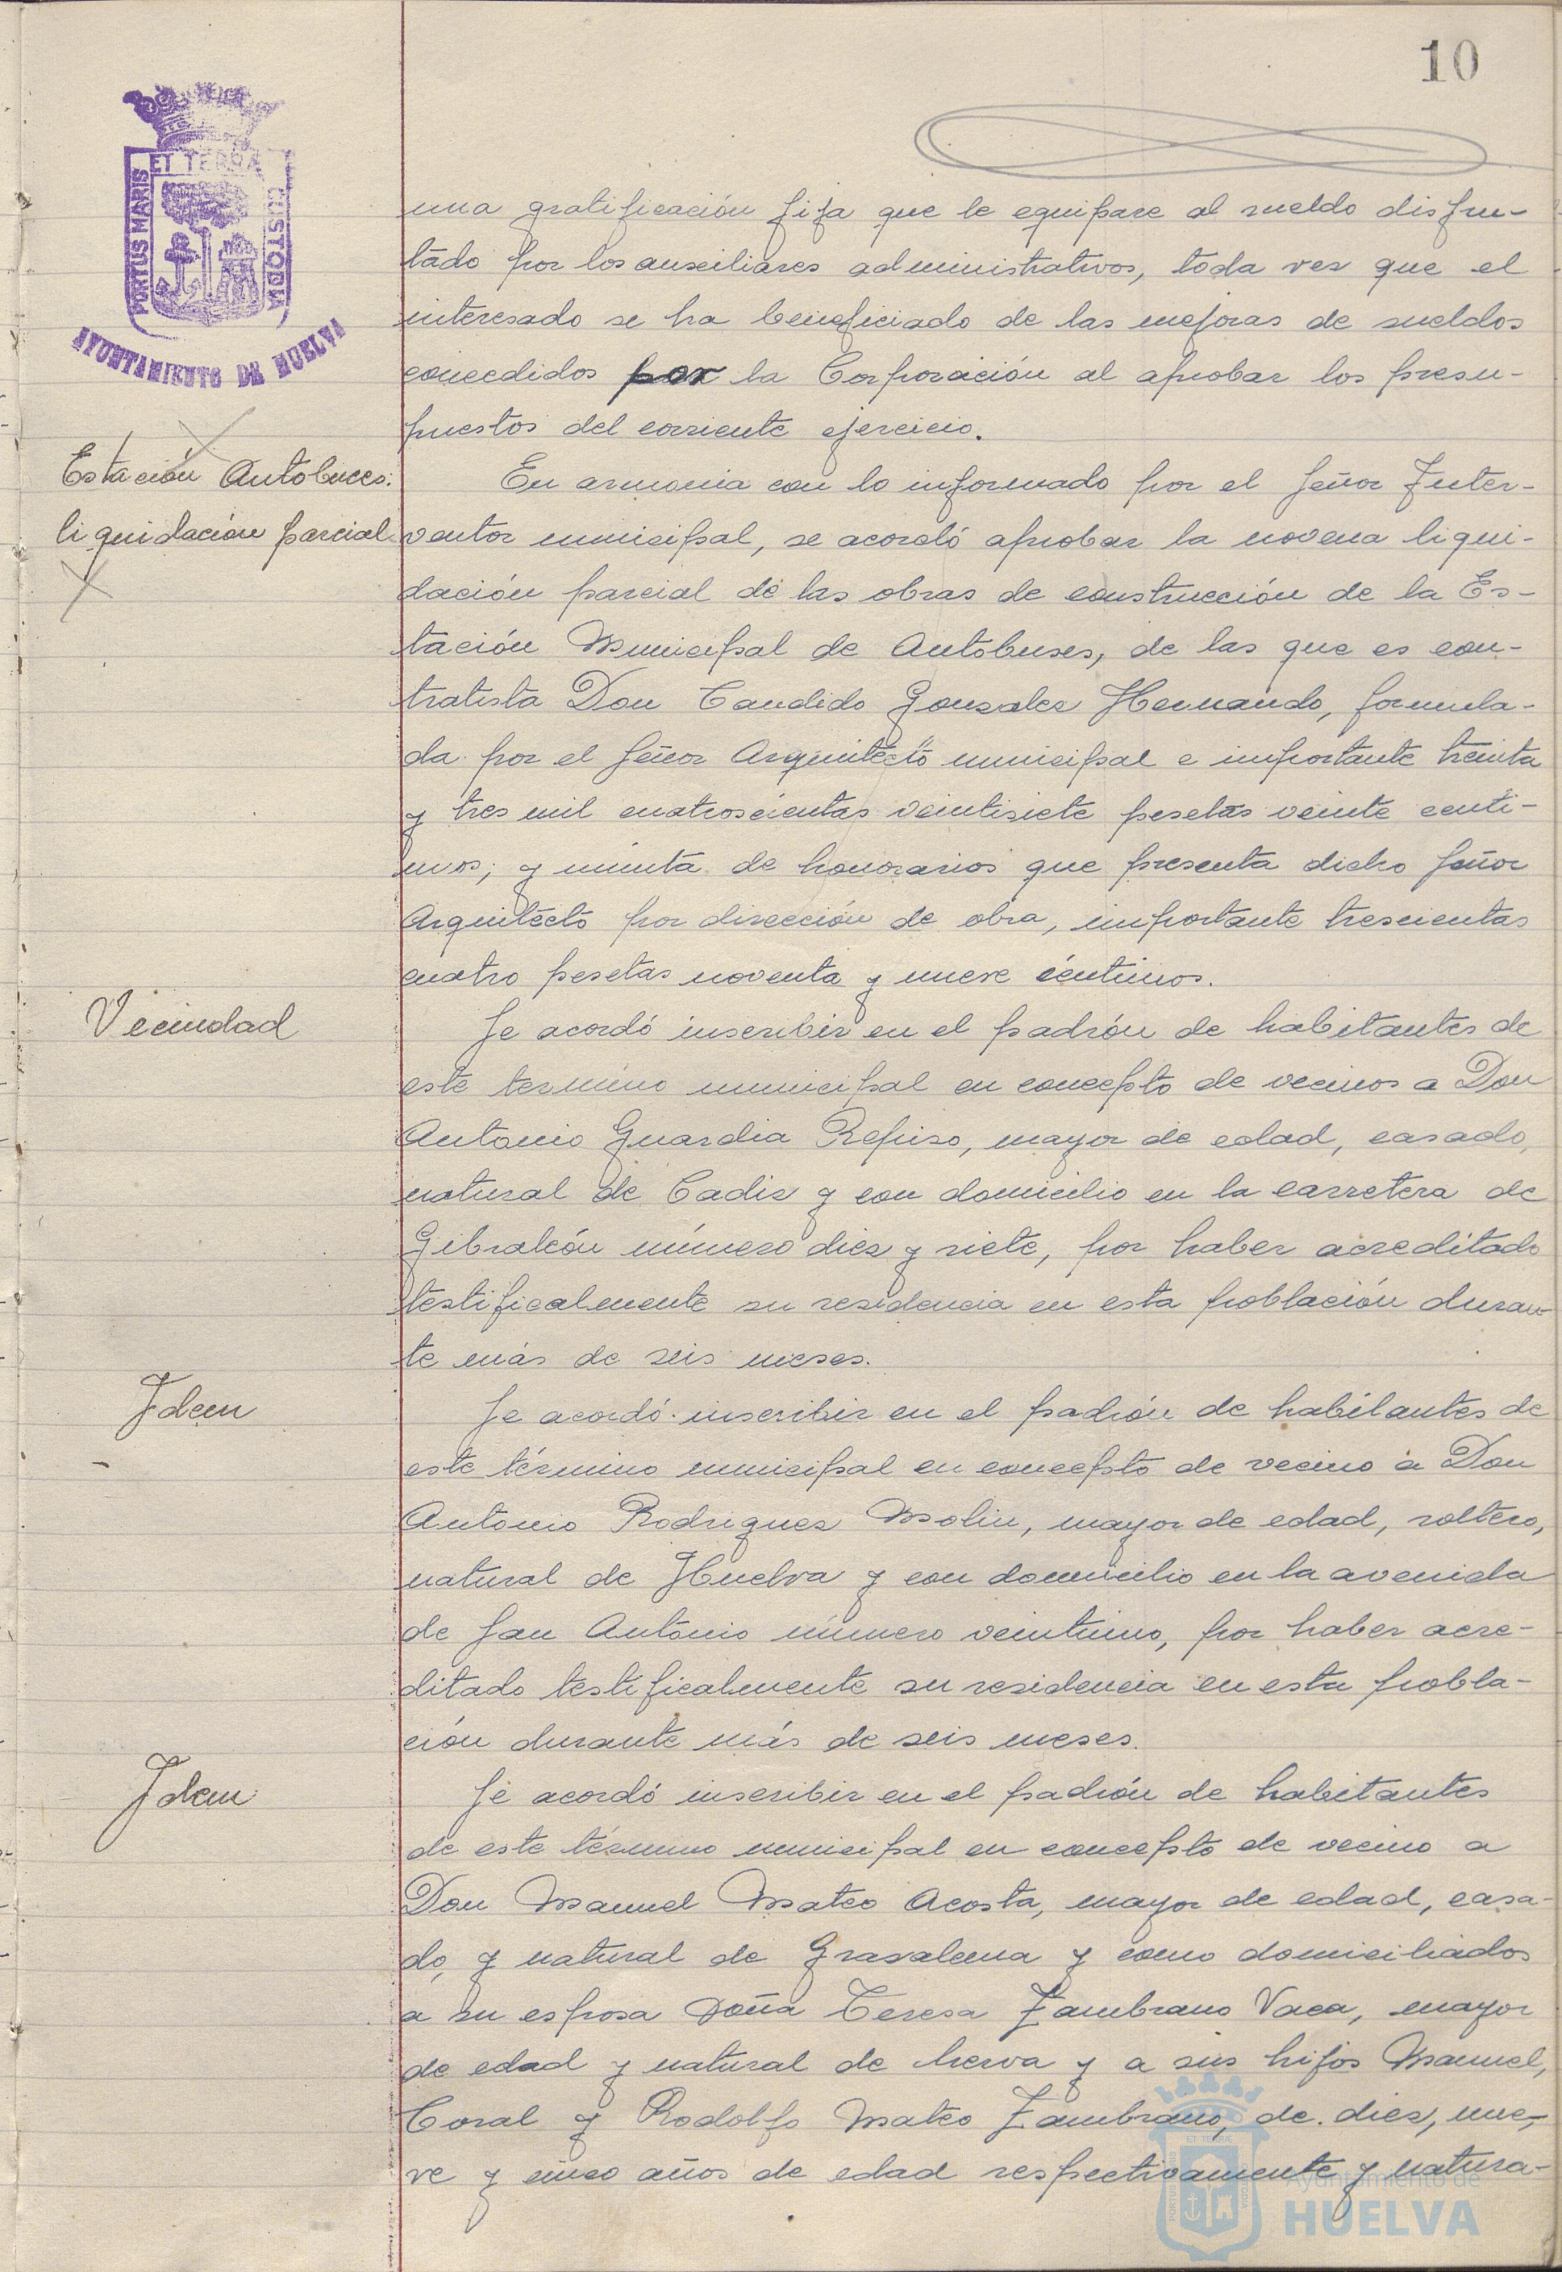 10
ET TERRA
PORTUS MARIS
CUSTODIA
AYUNTAMIENTO DE HUELVA
una gratificación fija que le equipare al sueldo disfru-
tado por los auxiliares administrativos, toda vez que el
interesado se ha beneficiado de las mejoras de sueldos
concedidos por la Corporación al aprobar los presu-
puestos del corriente ejercicio.
Estación Autobuces:
liquidación parcial
En armonia con lo informado por el Señor Inter-
ventor municipal, se acordó aprobar la novena liqui-
dación parcial de las obras de construcción de la Es-
tación Municipal de Autobuses, de las que es con-
tratista Don Candido Gonzalez Hernando, formula-
da por el Señor Arquitecto municipal e importante treinta
y tres mil cuatroscientas veintisiete pesetas veinte centi-
mos; y minuta de honorarios que presenta dicho Señor
Arquitecto por dirección de obra, importante trescientas
cuatro pesetas noventa y nueve céntimos.
Vecindad
Se acordó inscribir en el padrón de habitantes de
este termino municipal en concepto de vecinos a Don
Antonio Guardia Repiso, mayor de edad, casado,
natural de Cadiz y con domicilio en la carretera de
Gibraleón número diez y siete, por haber acreditado
testificalmente su residencia en esta población duran-
te más de seis meses.
Idem
Se acordó inscribir en el padrón de habitantes de
este término municipal en concepto de vecino a Don
Antonio Rodriguez Molin, mayor de edad, soltero,
natural de Huelva y con domicilio en la avenida
de San Antonio número veintiuno, por haber acre-
ditado testificalmente su residencia en esta pobla-
ción durante más de seis meses.
Idem
Se acordó inscribir en el padrón de habitantes
de este término municipal en concepto de vecino a
Don Manuel Mateo Acosta, mayor de edad, casa-
do, y natural de Grazalema y como domiciliados
a su esposa Doña Teresa Zambrano Vaca, mayor
de edad y natural de Nerva y a sus hijos Manuel,
Coral y Rodolfo Mateo Zambrano, de diez, nue-
ve y cinco años de edad respectivamente y natura-
Ayuntamiento de
HUELVA